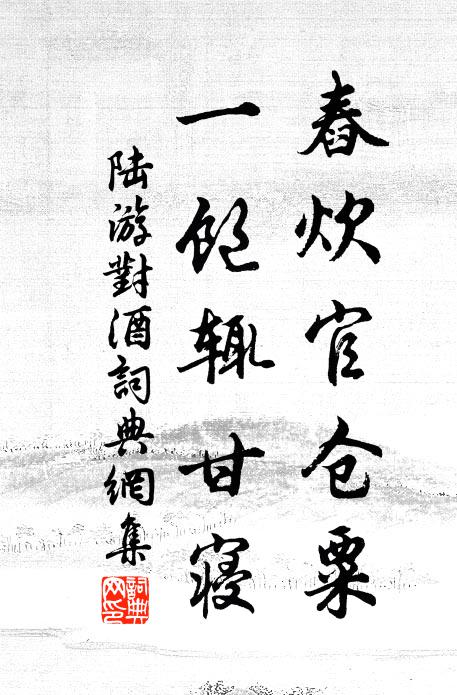 舂炊官仓粟
一饱辄甘寝
陆游對酒詞典網集
詞典